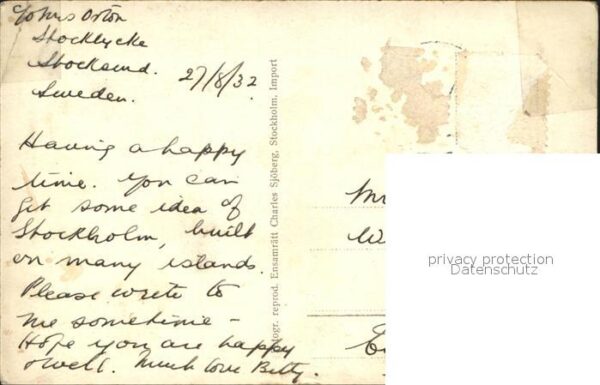 Orton
Stocklycke
Stocksund. 27/8/32
Sweden.
Having a happy
time. You can
get some idea of
Stockholm, built
on many islands.
Please write to
me sometime –
Hope you are happy
& well. Much love Betty.
ogr. reprod. Ensamrätt Charles Sjöberg, Stockholm. Import
privacy protection
Datenschutz